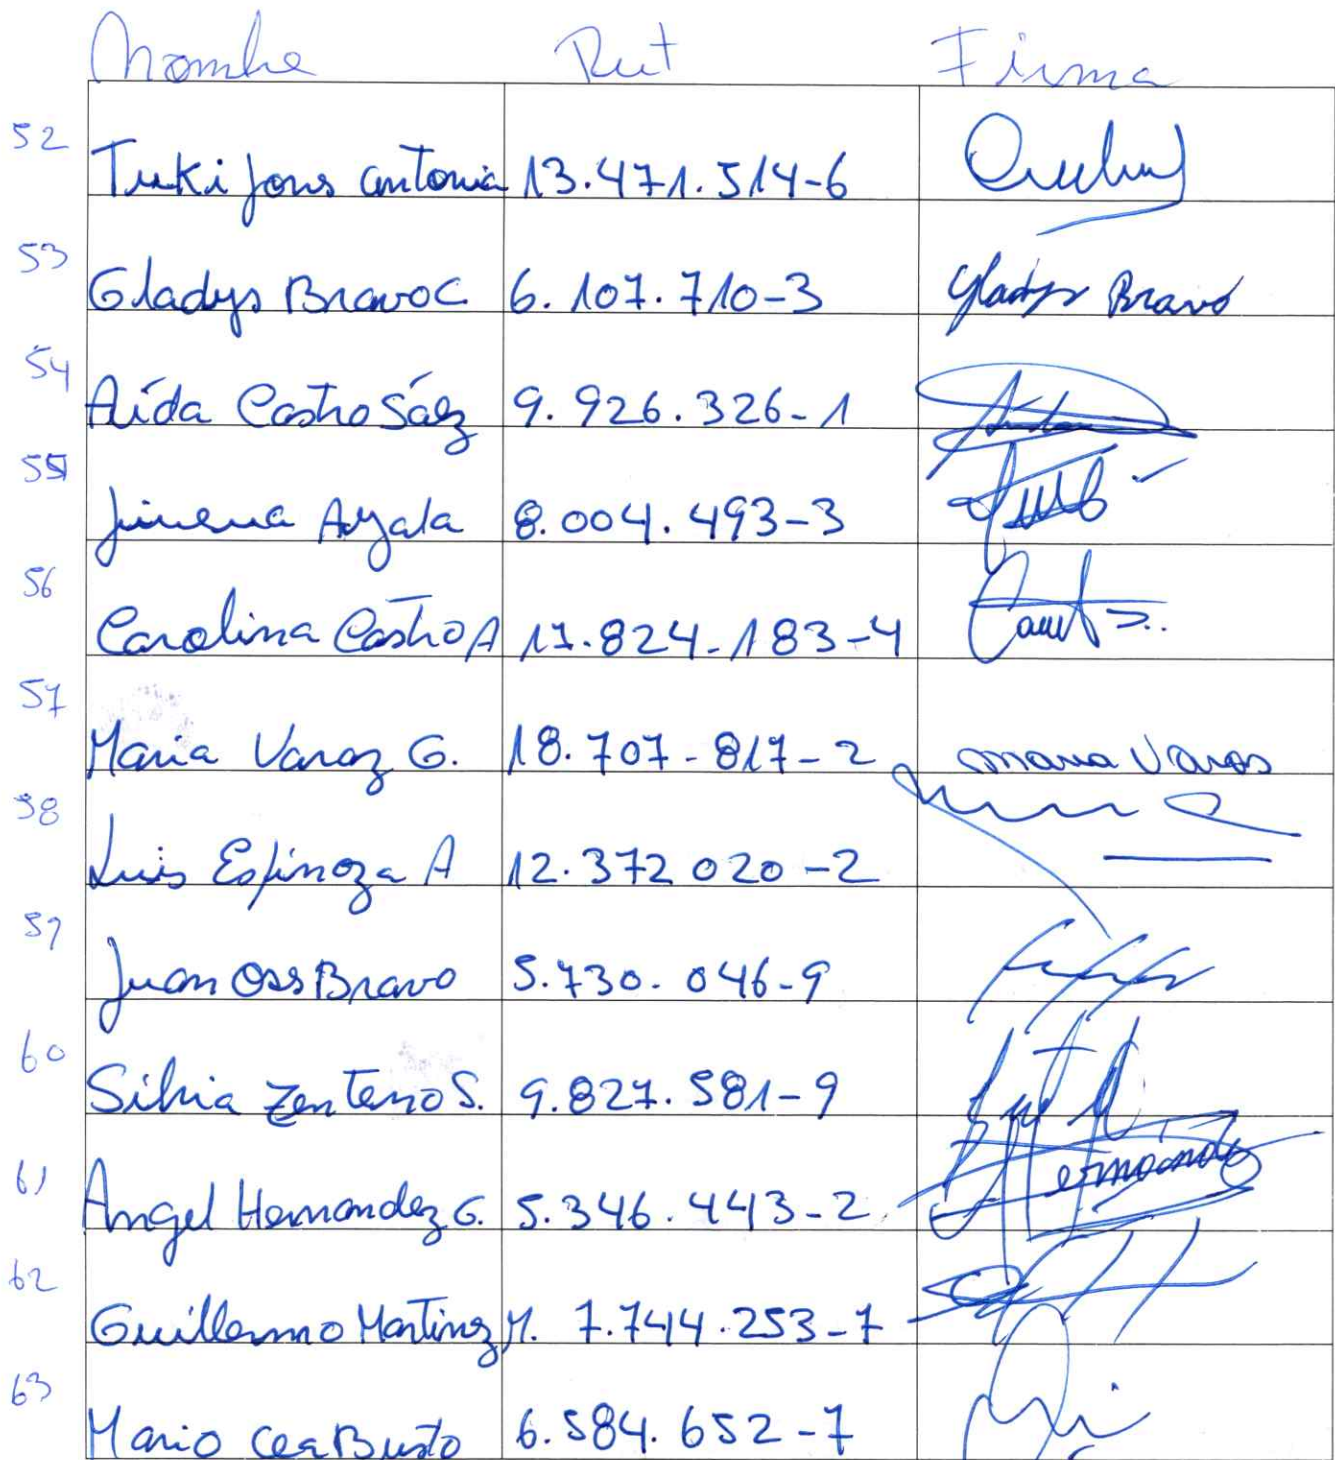 Nombre Rut Firma
52 Tuki Jons Antonia 13.471.514-6
53 Gladys Bravo C 6.107.710-3 Gladys Bravo
54 Aída Castro Sáez 9.926.326-1
55 Jimena Ayala 8.004.493-3
56 Carolina Castro A 17.824-183-4
57 Maria Varaz G. 18.707-817-2 Maria Varas
58 Luis Espinoza A 12.372 020-2
59 Juan Oss Bravo 5.730.046-9
60 Silvia Zenteno S. 9.827.581-9
61 Angel Hernandez G. 5.346.443-2 Hernandez
62 Guillermo Martinez M. 7.744.253-7
63 Mario Cea Busto 6.584.652-7